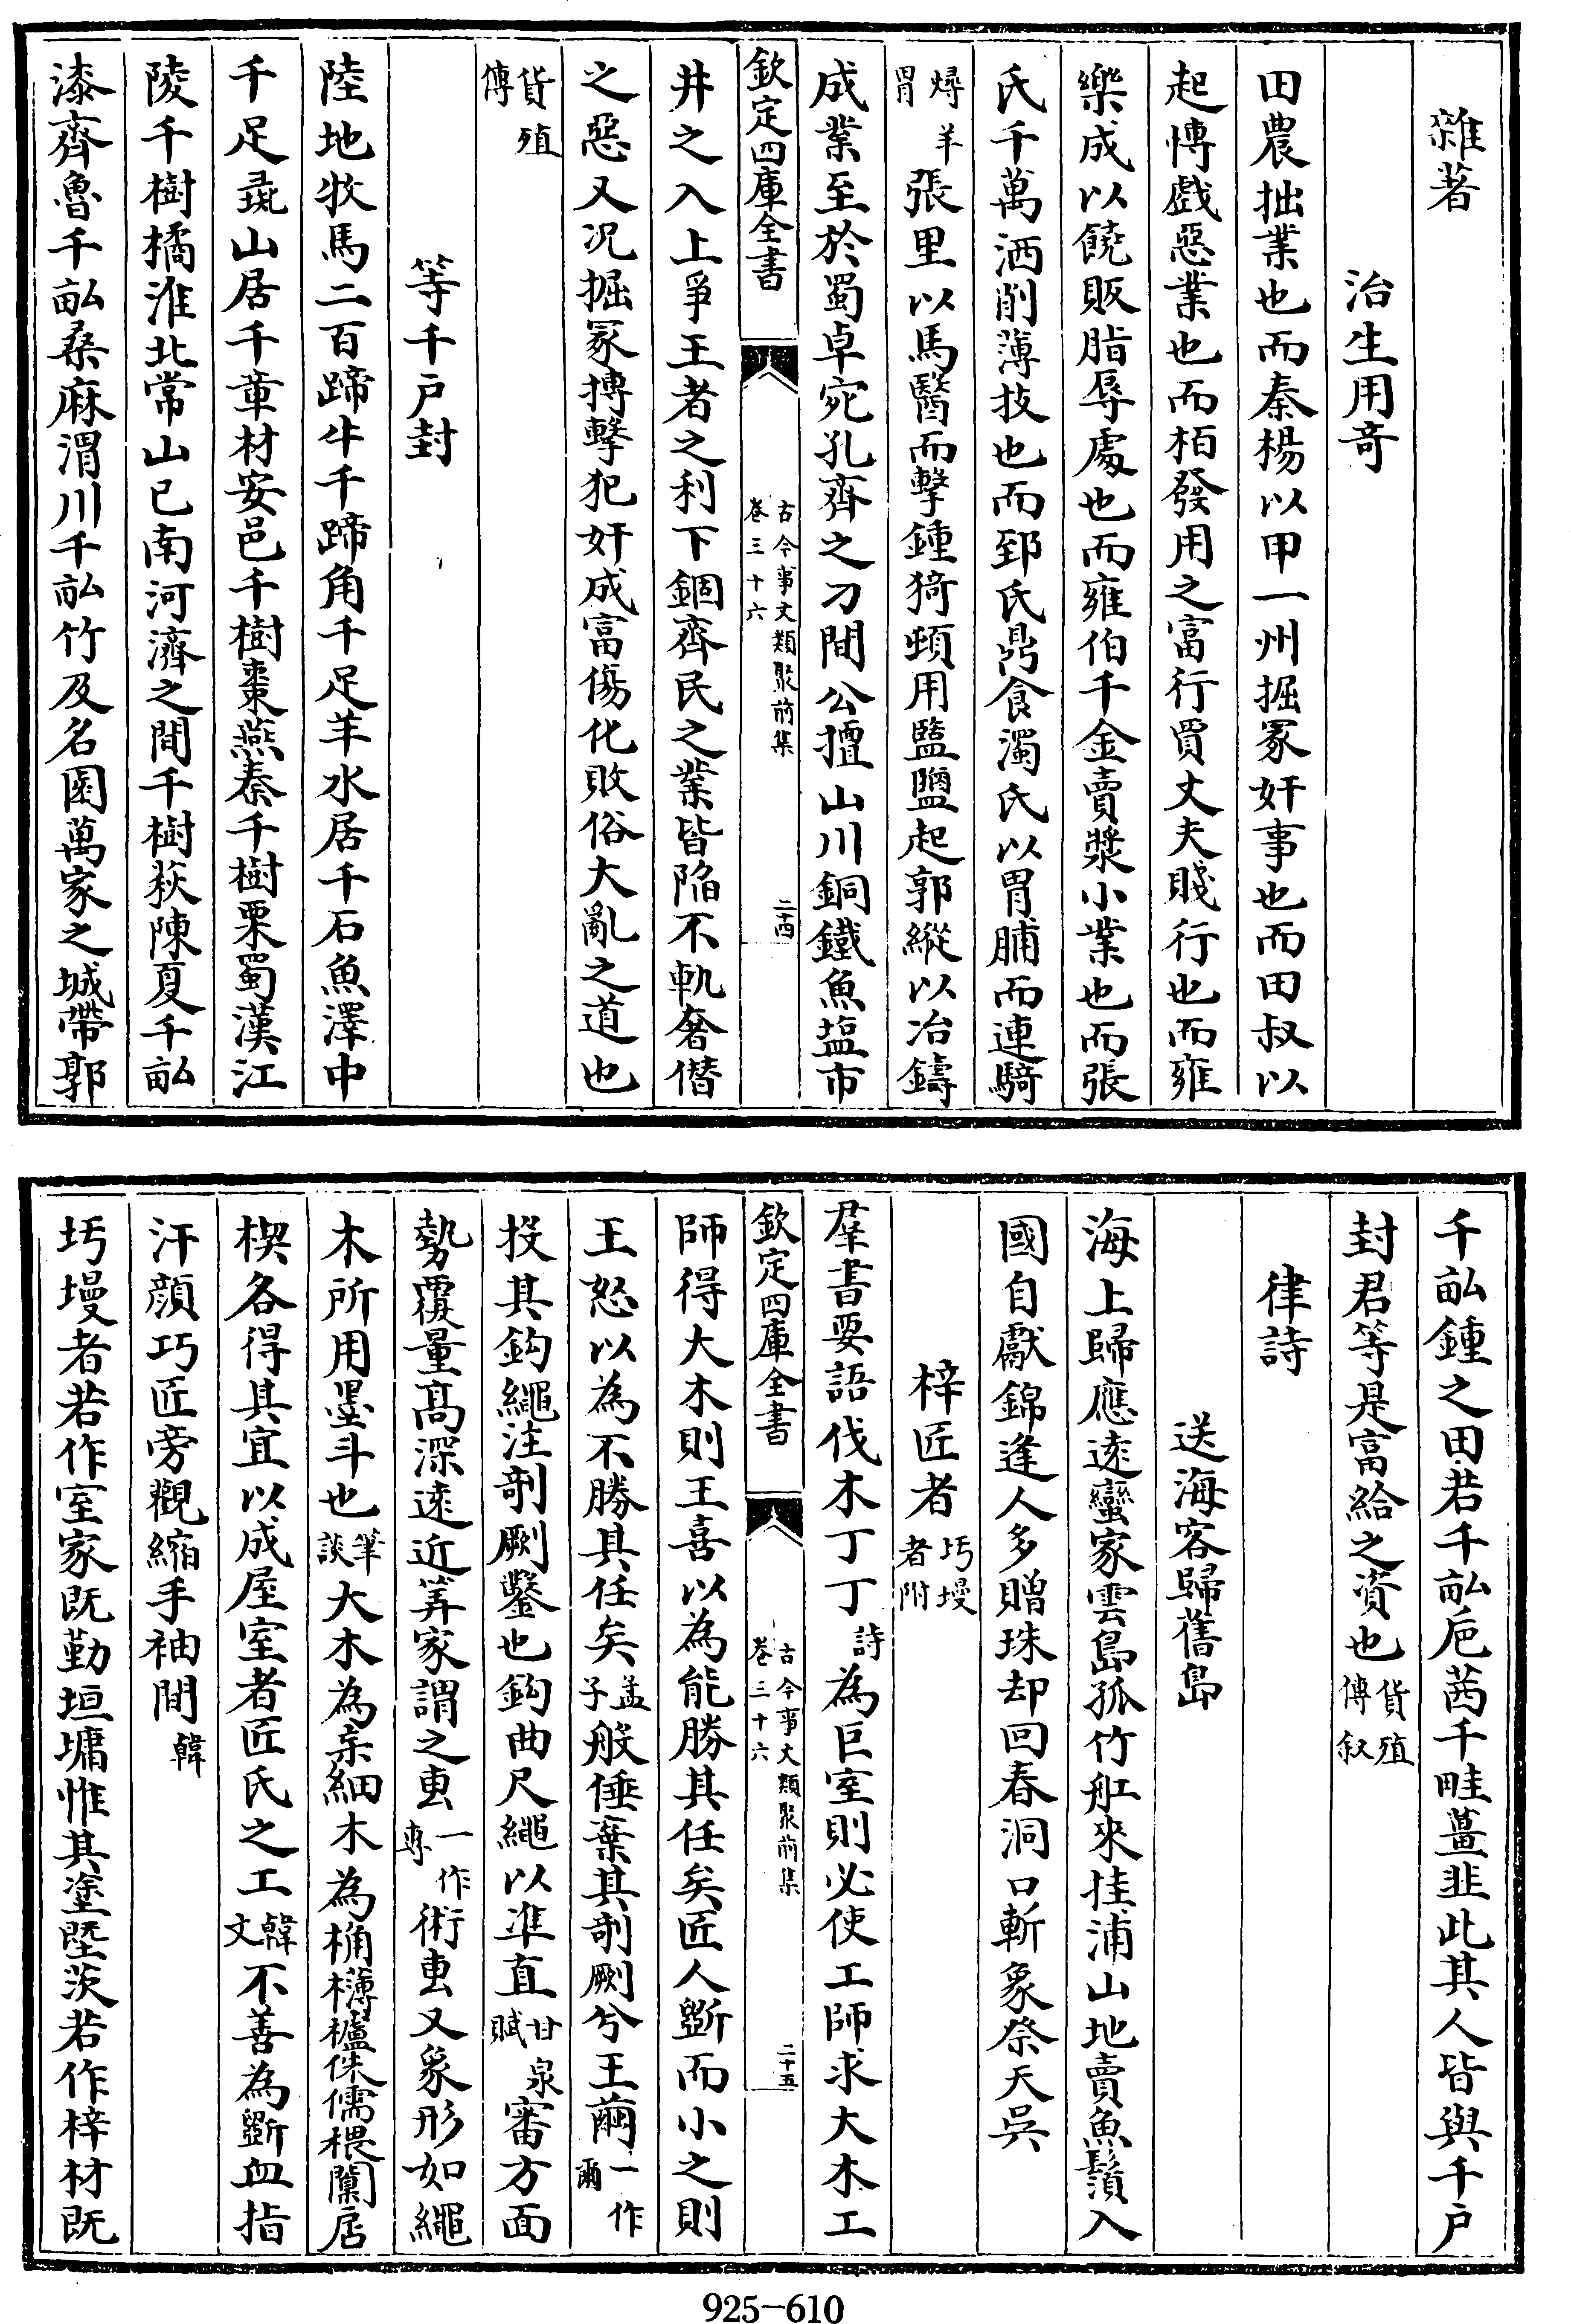 雜著
治生用竒
田農拙業也而秦楊以甲一州掘冢奸事也而田叔以
起慱戲惡業也而栢發用之富行賈丈夫賤行也而雍
樂成以饒販脂辱處也而雍伯千金賣漿小業也而張
氏千萬洒削薄技也而郅氏鼎食濁氏以胃脯而連騎
燖羊胃張里以馬醫而擊鍾猗頓用盬鹽起郭縱以冶鑄
成業至於蜀卓宛孔齊之刁間公擅山川銅鐵魚塩市
欽定四庫全書
古今事文類聚前集
卷三十六
二十四
井之入上爭王者之利下錮齊民之業皆陷不軌奢僭
之惡又况掘冢搏擊犯奸成富傷化敗俗大亂之道也
貨殖傳
等千户封
陸地牧馬二百蹄牛千蹄角千足羊水居千石魚澤中
千足彘山居千章材安邑千樹棗燕秦千樹栗蜀漢江
陵千樹橘淮北常山已南河濟之間千樹荻陳夏千畝
漆齊魯千畝桑麻渭川千畝竹及名園萬家之城帶郭
千畝鍾之田若千畝巵茜千畦薑韭此其人皆與千户
封君等是富給之資也貨殖傳叙
律詩
送海客歸舊島
海上歸應逺蠻家雲島孤竹舡來挂浦山地賣魚鬚入
國自獻錦逢人多贈珠却回春洞口斬象祭天吳
梓匠者圬墁者附
羣書要語伐木丁丁詩為巨室則必使工師求大木工
欽定四庫全書
古今事文類聚前集
卷三十六
二十五
師得大木則王喜以為能勝其任矣匠人斵而小之則
王怒以為不勝其任矣孟子般倕棄其剞劂兮王薾一作爾
投其鈎繩注剞劂鑿也鈎曲尺繩以凖直甘泉賦審方面
勢覆量髙深逺近筭家謂之軎一作軎術軎又象形如繩
木所用墨斗也筆談大木為杗細木為桷欂櫨侏儒椳闑扂
楔各得其宜以成屋室者匠氏之工韓文不善為斵血指
汗顔巧匠旁觀縮手袖間韓
圬墁者若作室家既勤垣墉惟其塗塈茨若作梓材既
925-610